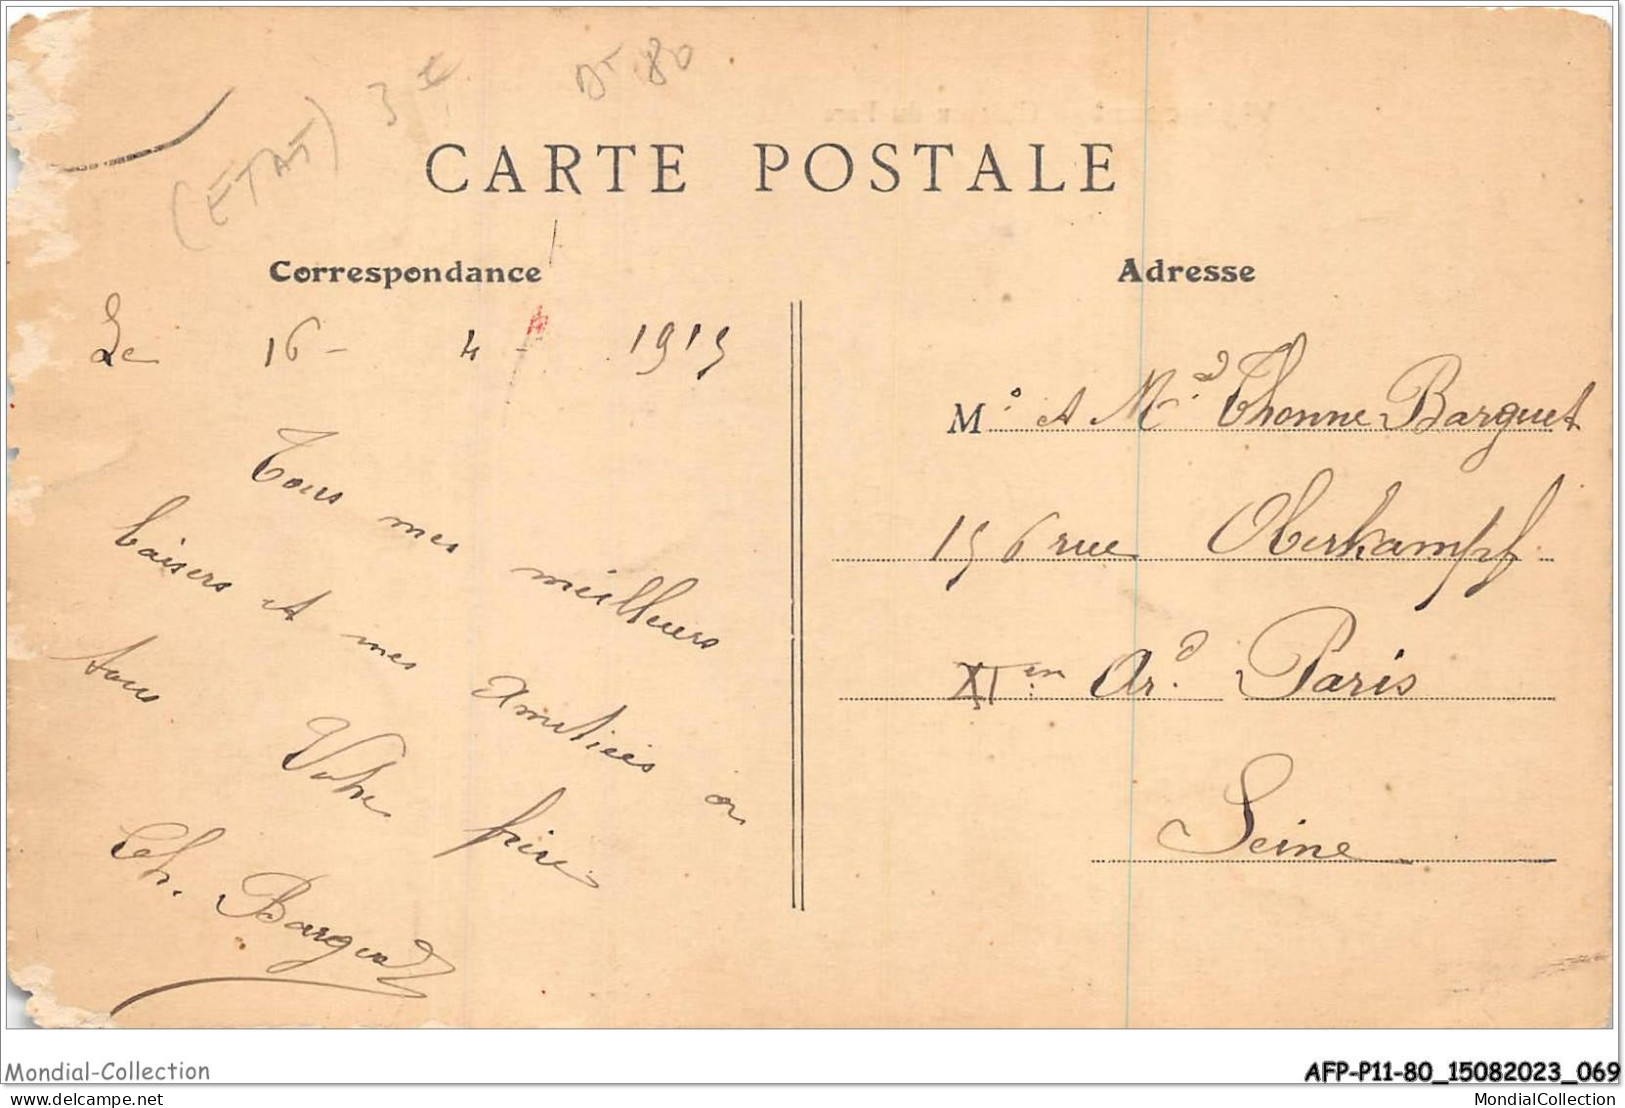 (ETAT) 3 €
Dt 80
CARTE POSTALE
Correspondance
Le 16 - 4 - 1915
Tous mes meilleurs
baisers et mes amitiées a
tous
Votre frère
Ch. Barguet
Adresse
Mr et Md Thonne Barguet
156 rue Oberkampf
XIem Ard Paris
Seine
Mondial-Collection
AFP-P11-80_15082023_069
delcampe.net
MondialCollection